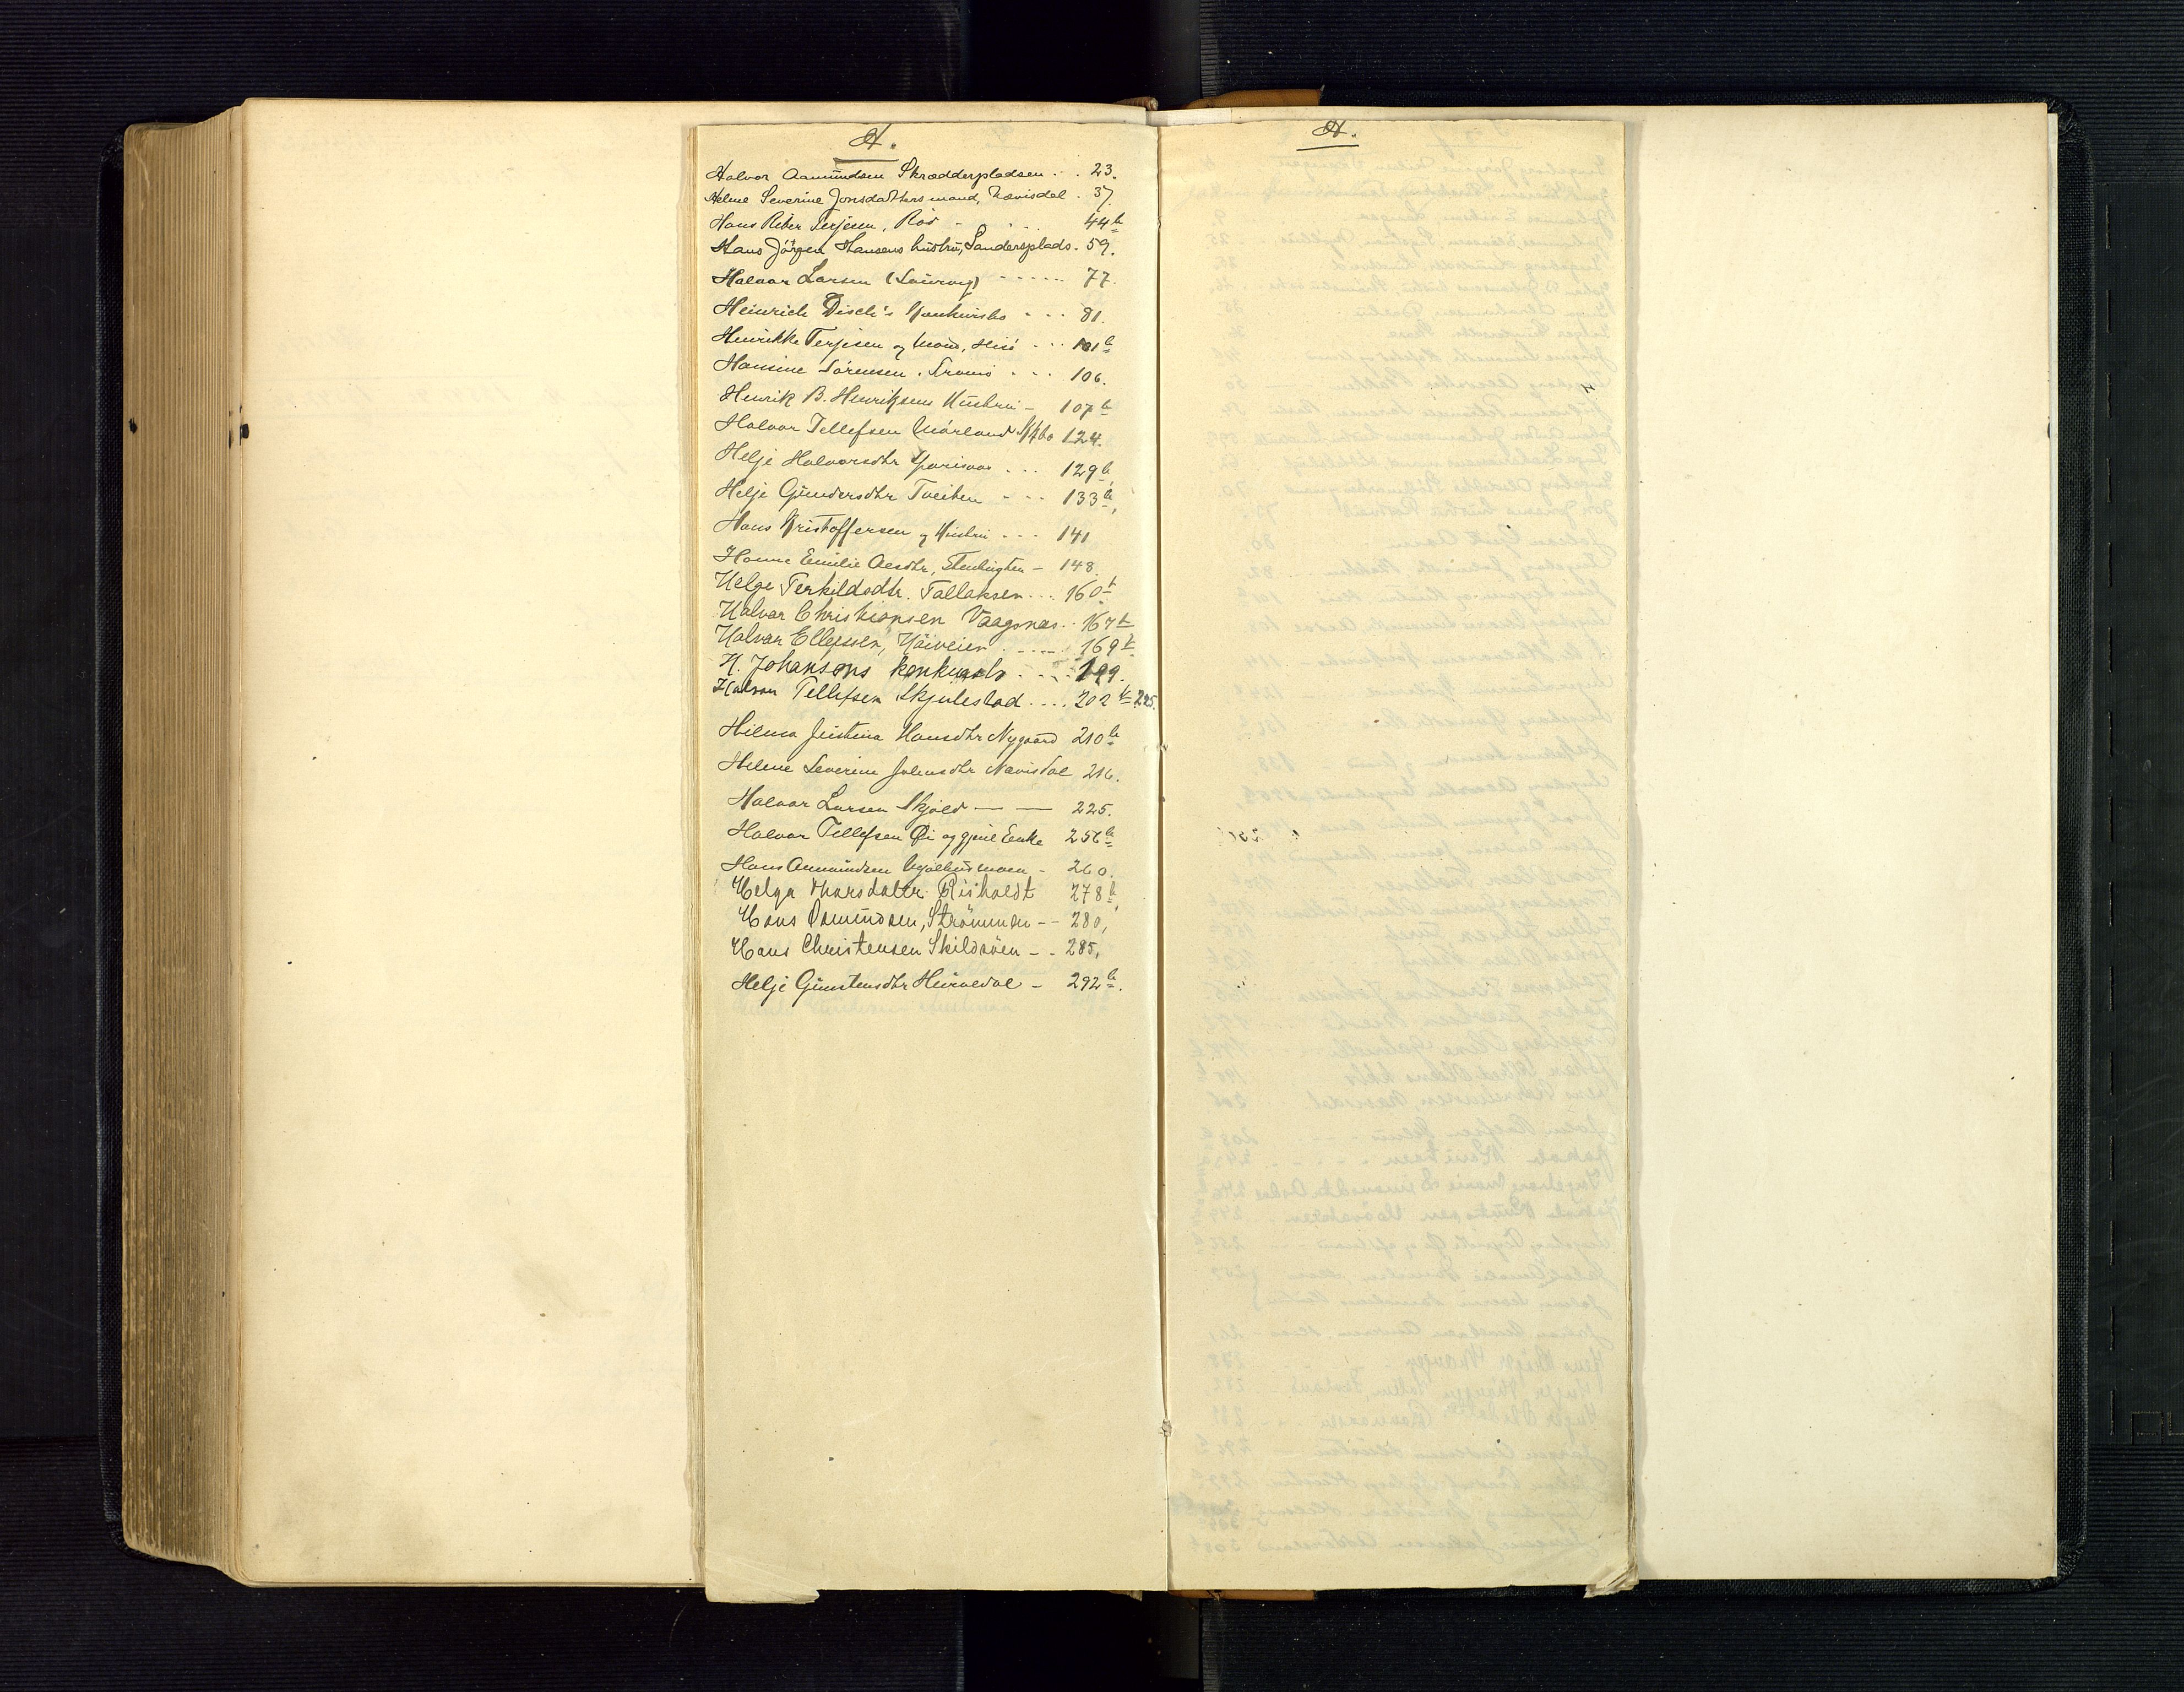 H.
Halvor Aamundsen Skrædderpladsen . . 23.
Helene Severine Jonsdatters mand, Nævisdal . 37.
Hans Peder Terjesen, Röd - . . . . 44b
Hans Jörgen Hansens hustru, Sandersplads . 59.
Halvor Larsen (Laurvig) - - - - - - 77.
Heinrich Disch's Konkursbo - - - 81.
Henrikke Terjesen og Mand, Hisö - - - 101b
Hansine Sörensen, Tromö . . . 106.
Henrik B. Henriksens Hustru - 107b
Halvor Tellefsen Mörland 124.
Helje Halvorsdtr . . . 129b
Helje Gundersdtr Tveiten - - - 133b,
Hans Kristoffersen og Hustru - - - 141
Hanne Emilie Aasdtr, - 148.
Helge Terkildsdtr. Tallaksen . . . 160b
Halvor Christiansen Vaagsnes . . 167b
Halvor Ellefsen, Höiveien . . - - - 169b
H. Johansons konkursbo . . . . 199.
Halvor Tellefsen Skjulestad . . . . 202b 225.
Hilma Justina Hansdtr Nygaard 210b
Helene Severine Johnsdtr Nævisdal 216.
Halvor Larsen Skjold — — 225.
Halvor Tellefsen Öi og gjenl Enke 256b
Hans Aamundsen - 260.
Helga Thorsdatter Risholdt 278b,
Hans Osmundsen, Strömmen - - 280,
Hans Christensen Skilsöen - - 285,
Helje Gunstensdtr - 292b.
H.